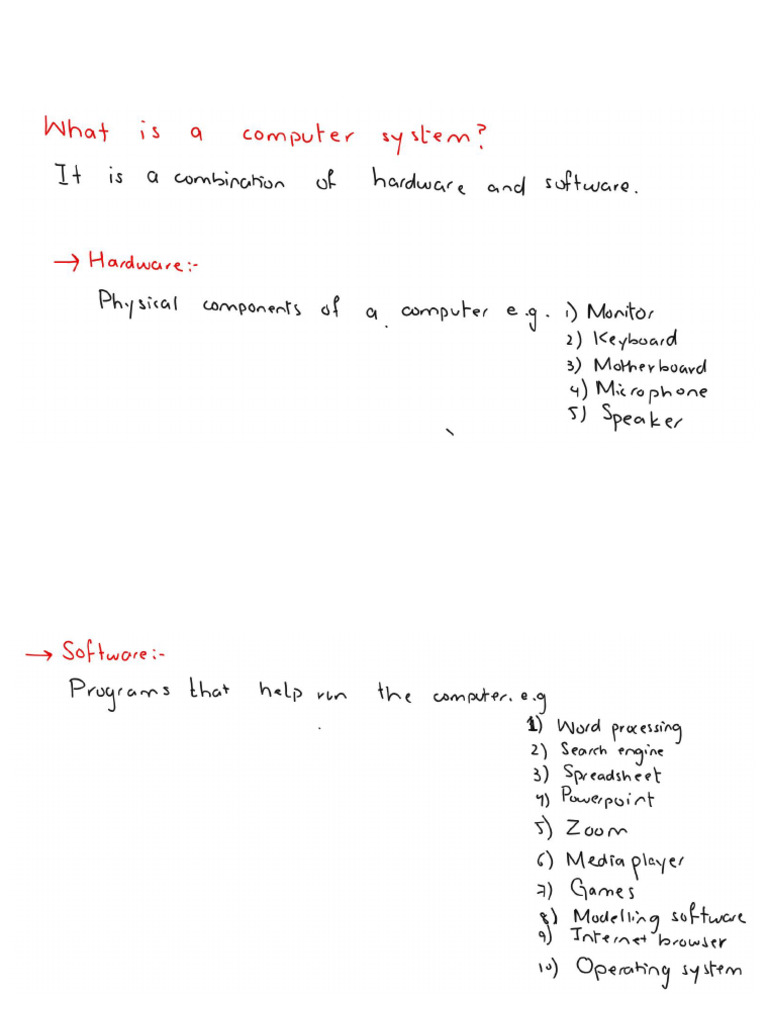 What is a computer system?
It is a combination of hardware and software.
→ Hardware:-
Physical components of a computer e.g. 1) Monitor
2) Keyboard
3) Motherboard
4) Microphone
5) Speaker
→ Software:-
Programs that help run the computer. e.g
1) Word processing
2) Search engine
3) Spreadsheet
4) Powerpoint
5) Zoom
6) Media player
7) Games
8) Modelling software
9) Internet browser
10) Operating system